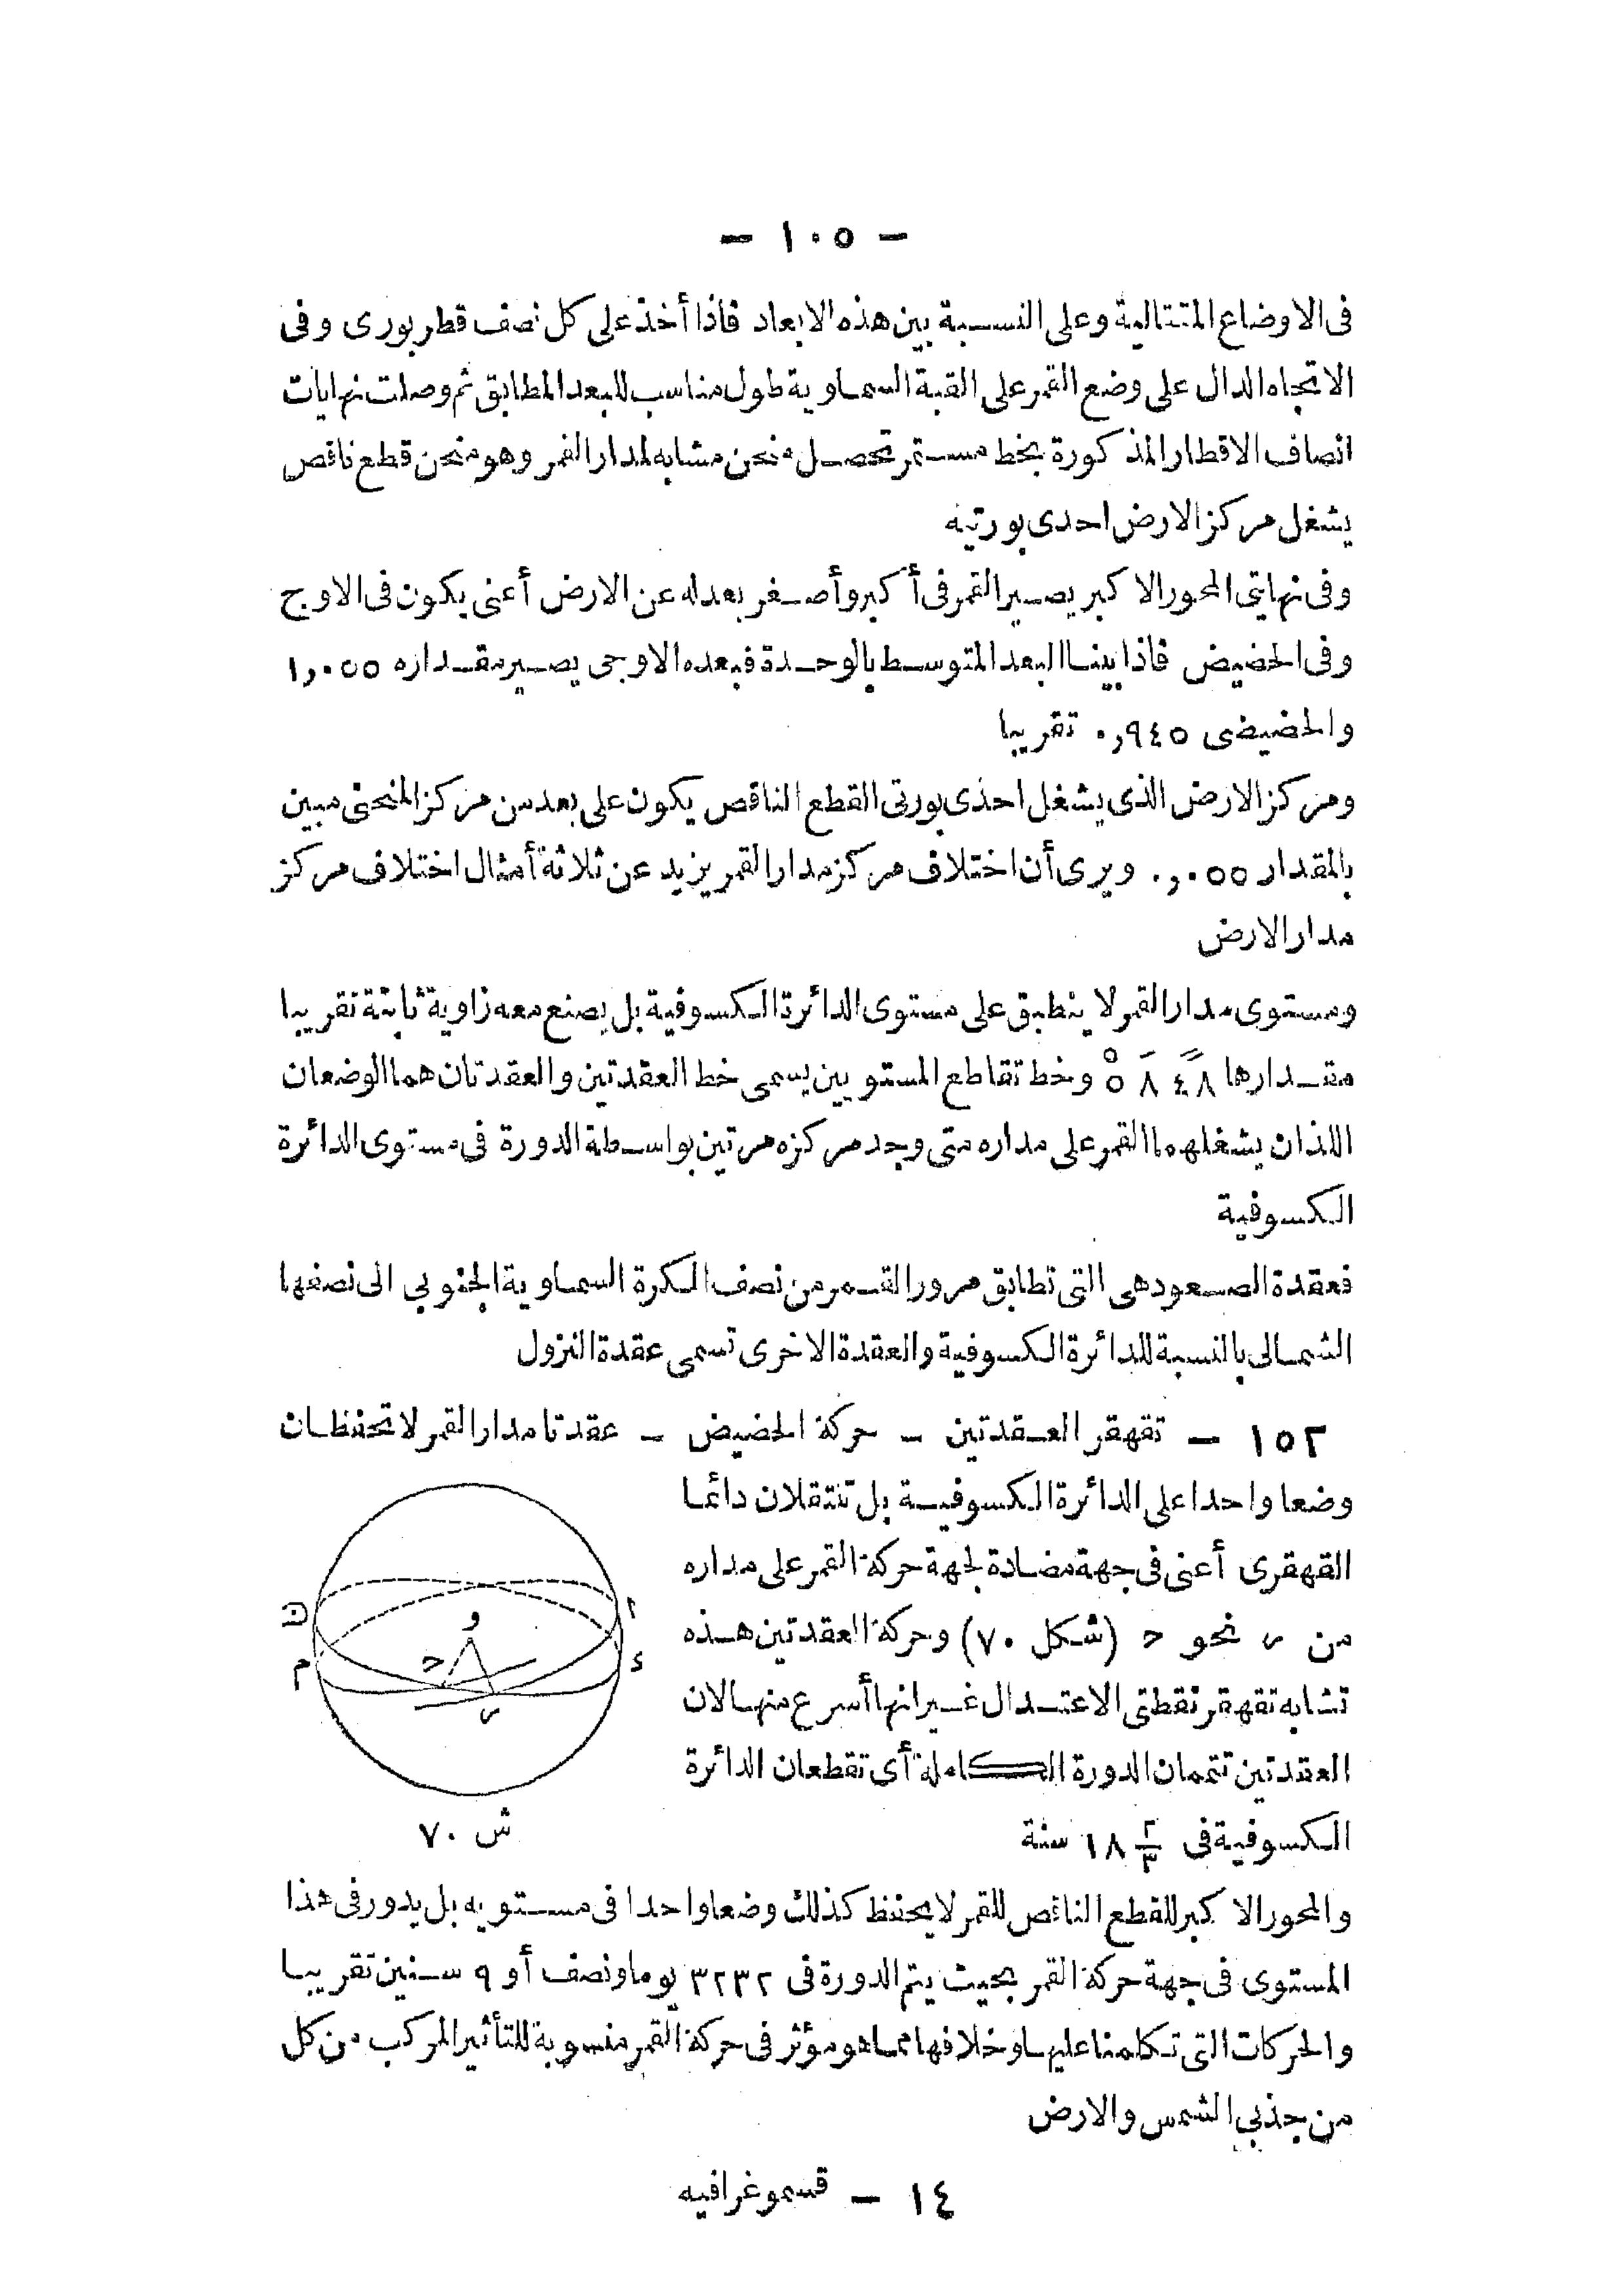 — ١٠٥ —
فى الاوضاع المتتالية وعلى النسبة بين هذه الابعاد فاذا أخذ على كل نصف قطر بورى وفى
الاتجاه الدال على وضع القمر على القبة السماوية طول مناسب للبعد المطابق ثم وصلت نهايات
انصاف الاقطار المذكورة بخط مستمر تحصل منحن مشابه لمدار القمر وهو منحن قطع ناقص
يشغل مركز الارض احدى بورتيه
وفى نهايتى المحور الاكبر يصير القمر فى أكبر وأصغر بعد له عن الارض أعنى يكون فى الاوج
وفى الحضيض فاذا بينا البعد المتوسط بالوحدة فبعده الاوجى يصير مقداره ١,٠٥٥
والحضيضى ٠,٩٤٥ تقريبا
ومركز الارض الذى يشغل احذى بورتى القطع الناقص يكون على بعد من مركز المنحنى مبين
بالمقدار ٠,٠٥٥ ويرى أن اختلاف مركز مدار القمر يزيد عن ثلاثة أمثال اختلاف مركز
مدار الارض
ومستوى مدار القمر لا ينطبق على مستوى الدائرة الكسوفية بل يصنع معه زاوية ثابتة تقريبا
مقدارها ٤٨ً ٨َ ٥ْ وخط تقاطع المستويين يسمى خط العقدتين والعقدتان هما الوضعان
اللذان يشغلهما القمر على مداره متى وجد مركزه مرتين بواسطة الدورة فى مستوى الدائرة
الكسوفية
فعقدة الصعود هى التى تطابق مرور القمر من نصف الكرة السماوية الجنوبى الى نصفها
الشمالى بالنسبة للدائرة الكسوفية والعقدة الاخرى تسمى عقدة النزول
١٥٢ — تقهقر العقدتين — حركة الحضيض — عقدتا مدار القمر لا تحفظان
وضعا واحدا على الدائرة الكسوفية بل تنتقلان دائما
القهقرى أعنى فى جهة مضادة لجهة حركة القمر على مداره
من ر نحو ح (شكل ٧٠) وحركة العقدتين هذه
تشابه تقهقر نقطتى الاعتدال غير انها أسرع منها لان
العقدتين تتممان الدورة الكاملة أى تقطعان الدائرة
الكسوفية فى ١٨ ٢/٣ سنة
ن
ا
و
م
ح
ء
ر
ش ٧٠
والمحور الاكبر للقطع الناقص للقمر لا يحفظ كذلك وضعا واحدا فى مستويه بل يدور فى هذا
المستوى فى جهة حركة القمر بحيث يتم الدورة فى ٣٢٣٢ يوما ونصف أو ٩ سنين تقريبا
والحركات التى تكلمنا عليها وخلافها مما هو مؤثر فى حركة القمر منسوبة للتأثير المركب من كل
من جذبى الشمس والارض
١٤ — قسموغرافيه